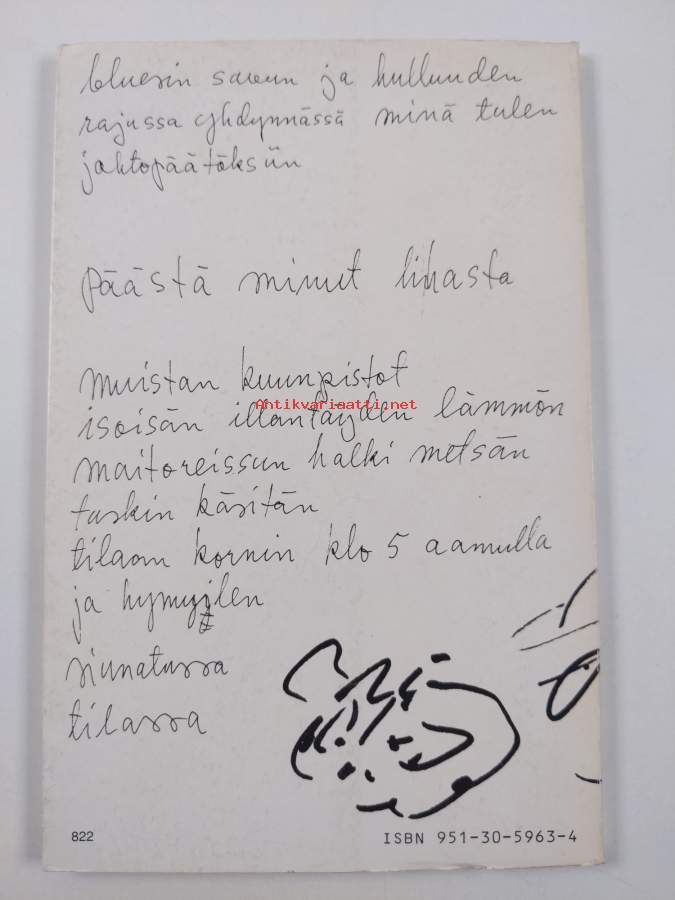 bluesin savun ja hulluuden
rajussa yhdynnässä minä tulen
johtopäätöksiin
päästä minut lihasta
muistan kuunpistot
Antikvariaatti.net
isoisän illantäyden lämmön
maitoreissun halki metsän
tuskin käsitän
tilaan kornin klo 5 aamulla
ja hymyilen
siunatussa
tilassa
822
ISBN 951-30-5963-4